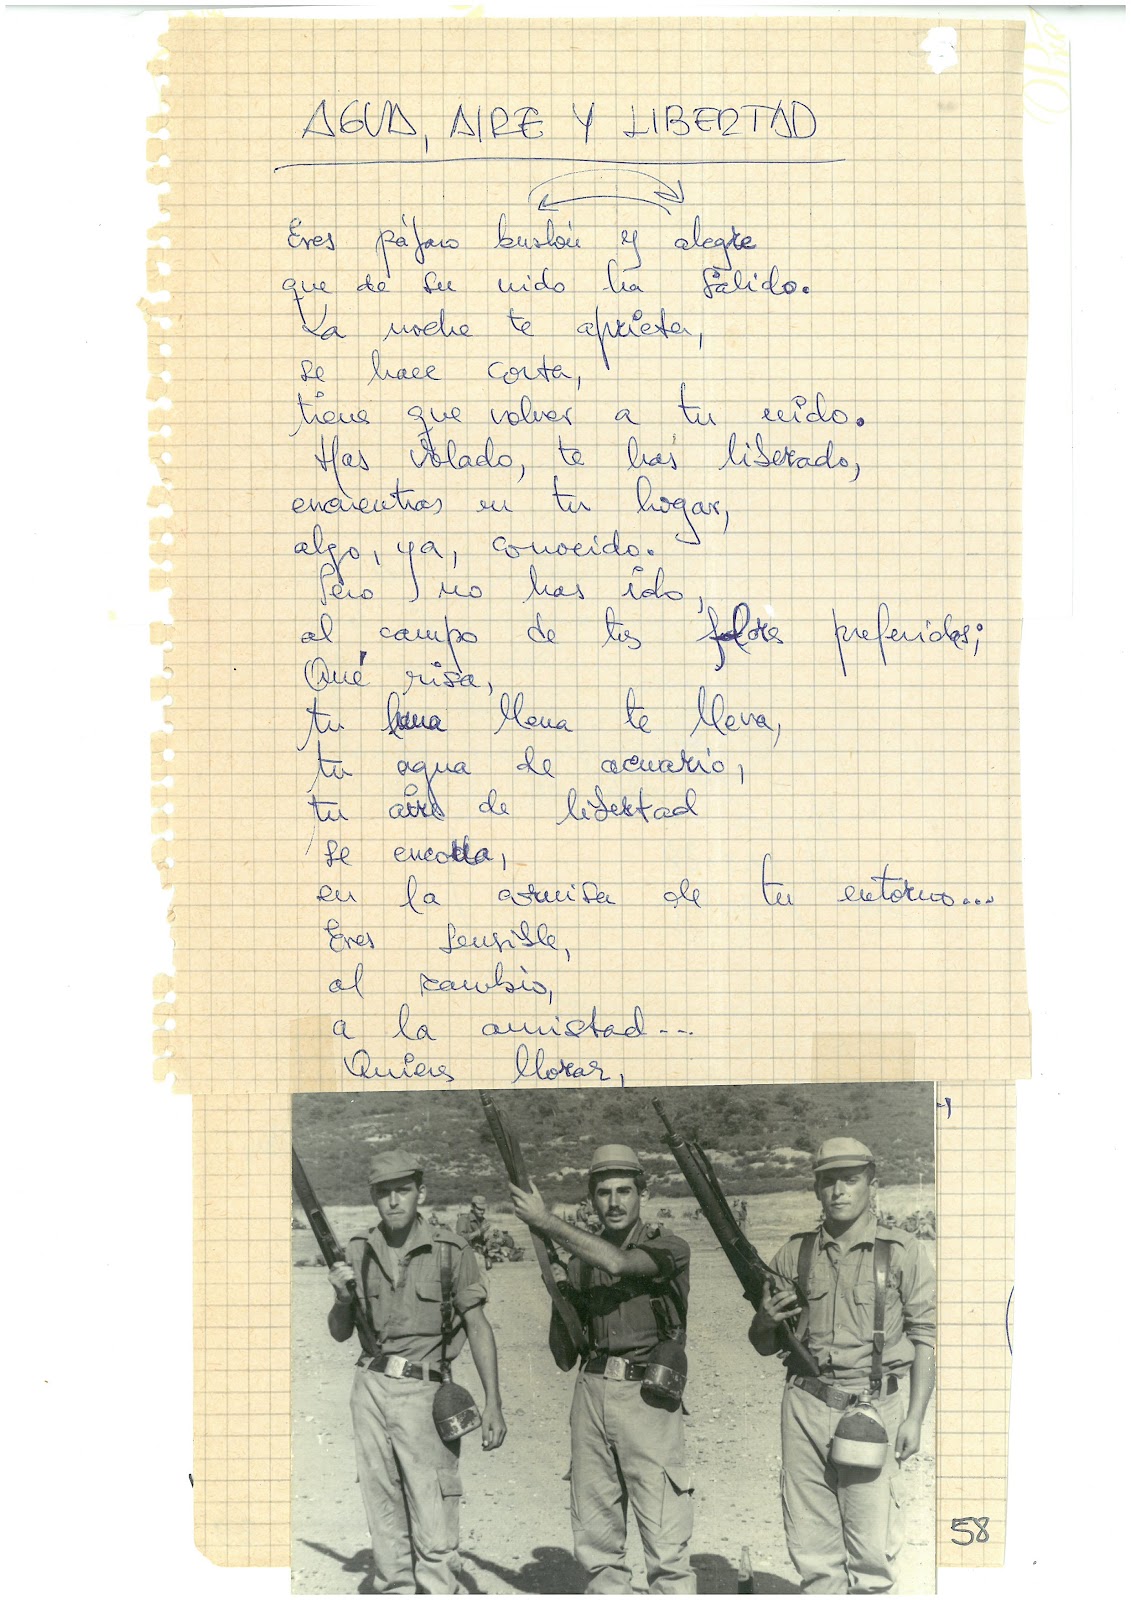 AGUA, AIRE Y LIBERTAD
Eres pájaro burlón y alegre
que de su nido ha salido.
La noche te aprieta,
se hace corta,
tiene que volver a tu nido.
Has volado, te has liberado,
encuentras en tu hogar,
algo, ya, conocido.
Pero no has ido,
al campo de tus flores preferidas;
Qué risa,
tu luna llena te lleva,
tu agua de acuario,
tu aire de libertad
se
en la de tu entorno...
Eres sensible,
al cambio,
a la amistad...
Quieres llorar,
58